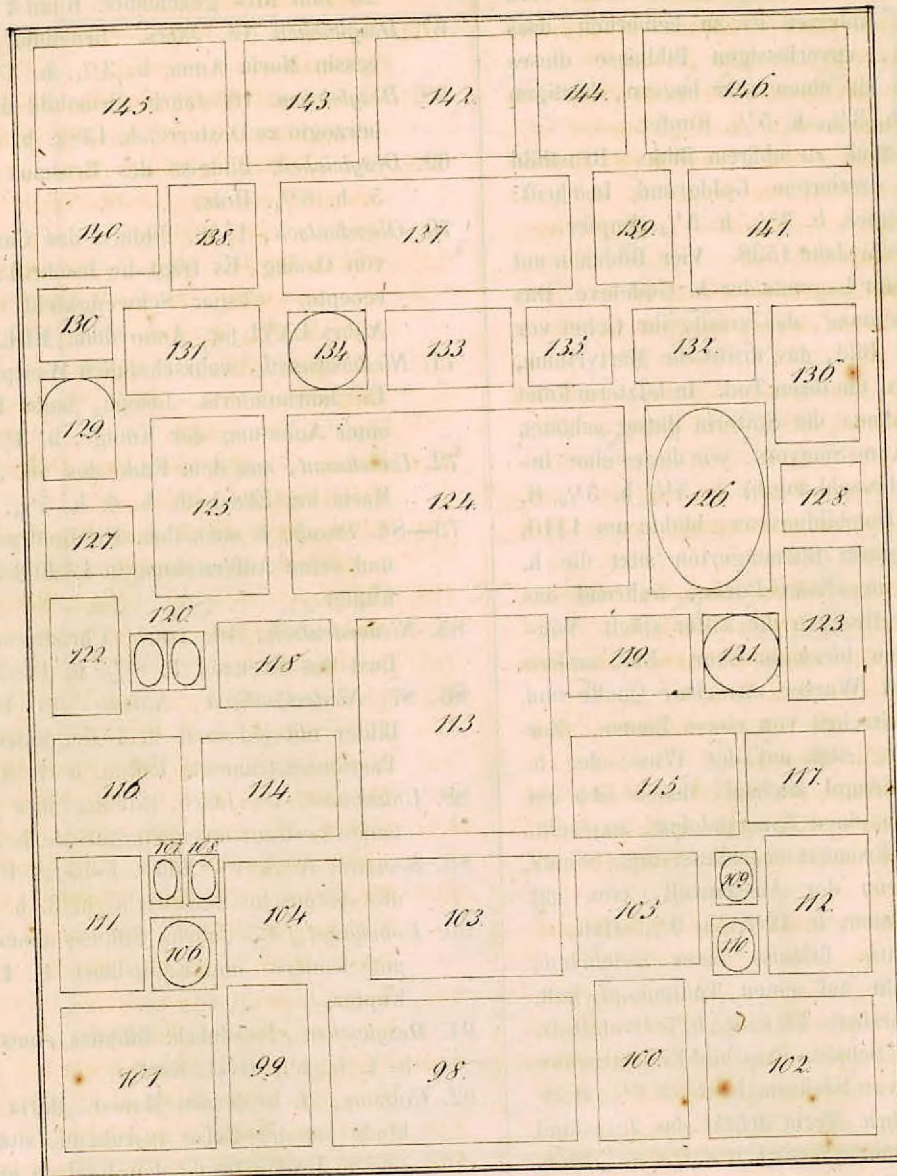 145. 143. 142. 144. 146.
140. 138. 137. 139. 147.
130. 131. 134. 133. 135. 132. 136.
129. 125. 124. 126. 128.
127.
120.
122. 118. 119. 121. 123.
113.
116. 114. 115. 117.
107. 108.
111. 104. 103. 105. 109. 112.
106. 110.
101. 99. 98. 100. 102.